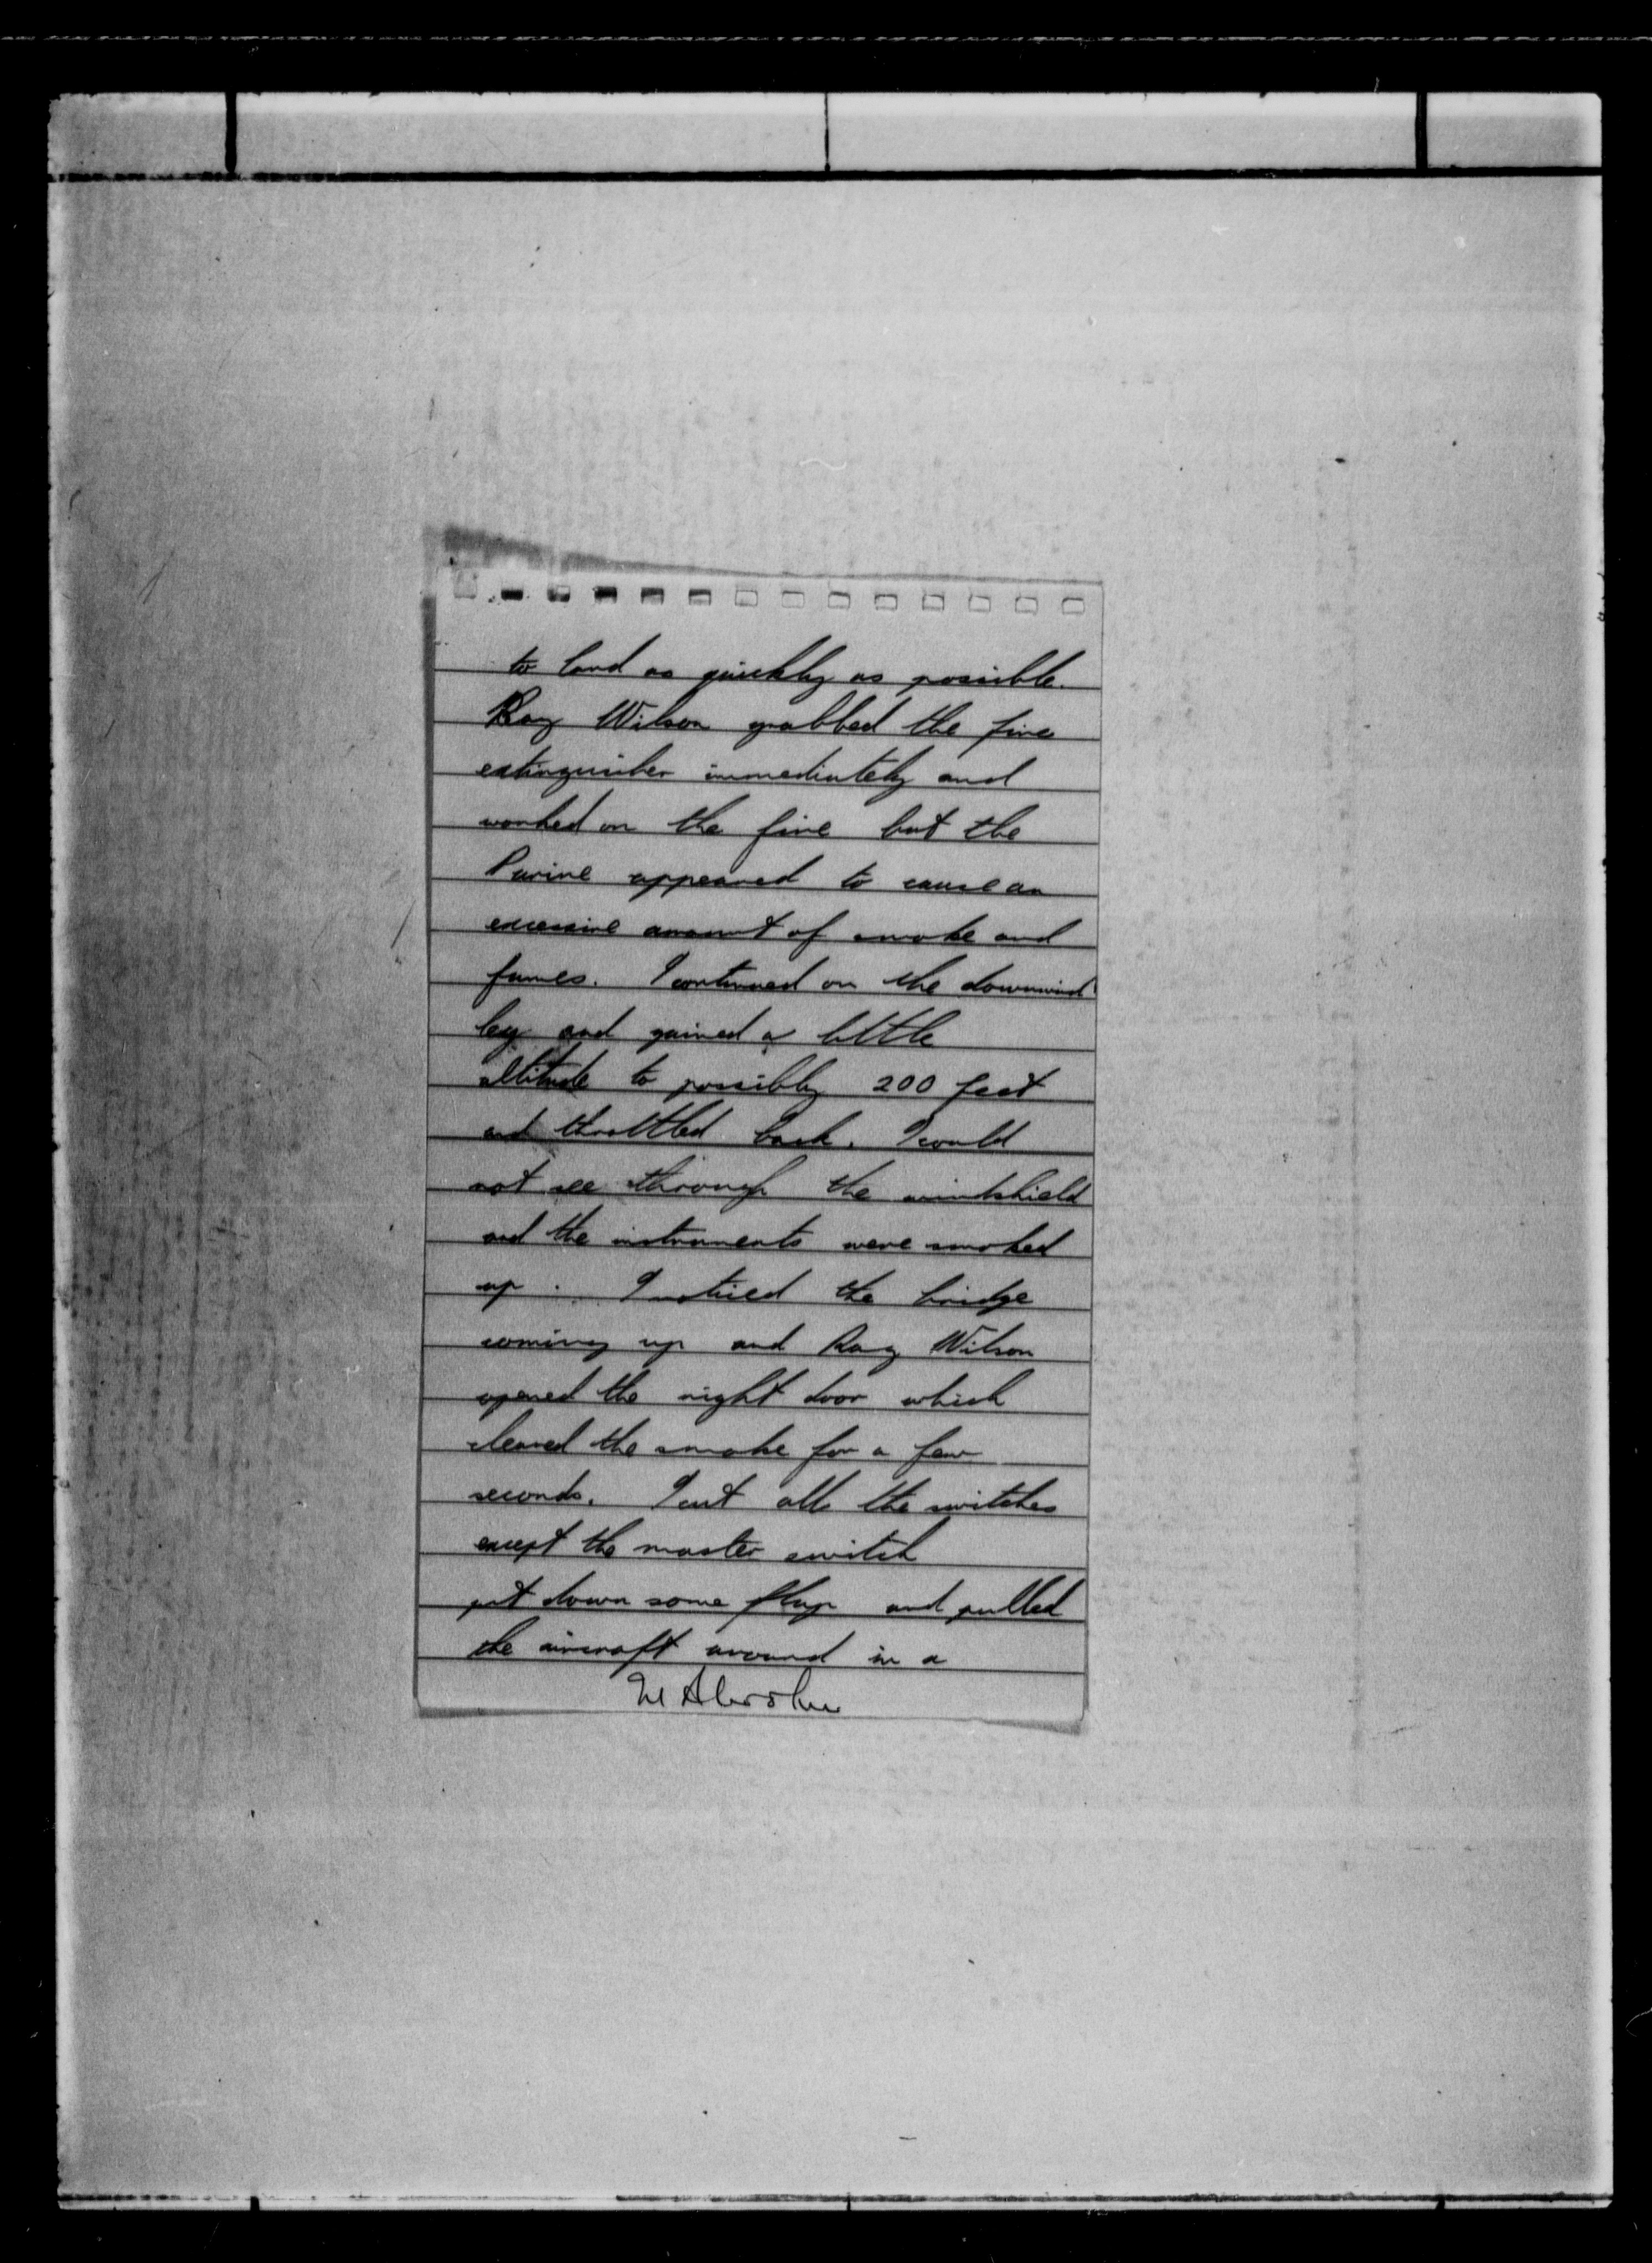 to land as quickly as possible.
Ray Wilson grabbed the fire
extinguisher immediately and
worked on the fire but the
Purine appeared to cause an
excessive amount of smoke and
fumes. I continued on the downwind
leg and gained a little
altitude to possibly 200 feet
and throttled back. I could
not see through the windshield
and the instruments were smoked
up. I noticed the bridge
coming up and Ray Wilson
opened the right door which
cleared the smoke for a few
seconds. I cut all the switches
except the master switch
put down some flap and pulled
the aircraft around in a